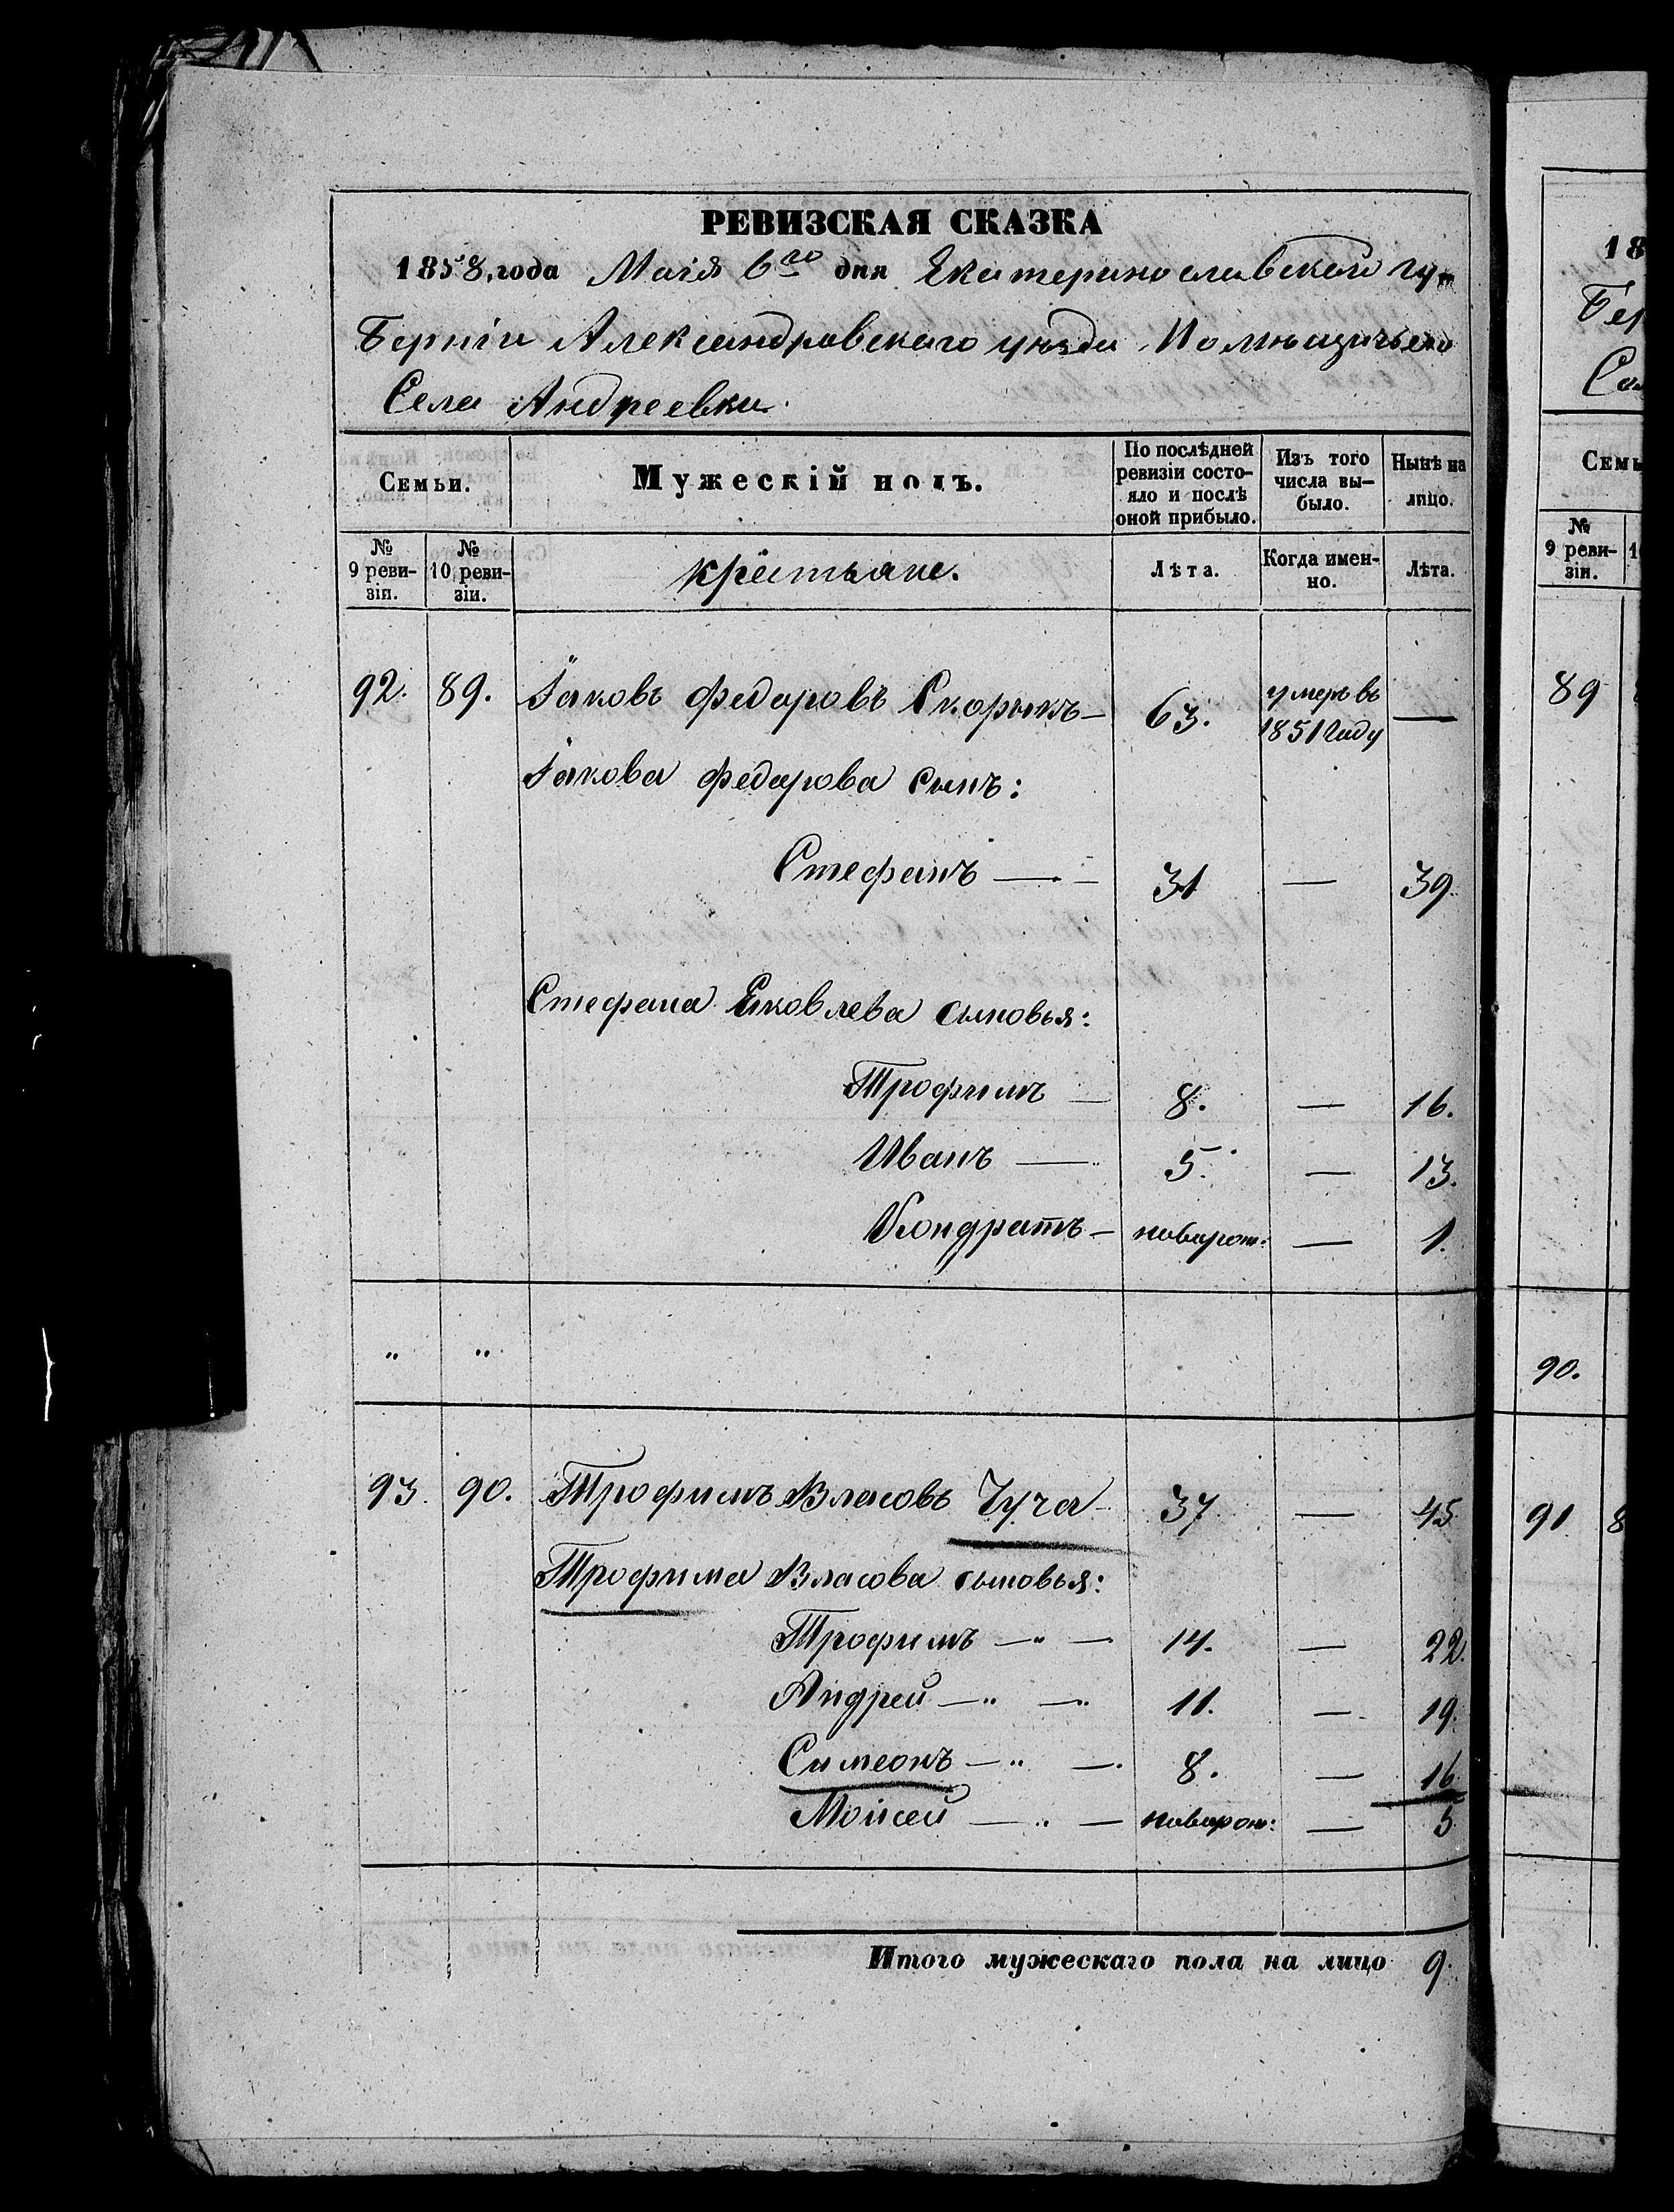 РЕВИЗСКАЯ СКАЗКА
1858, года Маія 6го дня Екатеринославской гу-
берніи Александровскаго уѣзда Помѣщичьяго
Села Андреевки.
Семьи.
Мужескій полъ.
По послѣдней ревизіи состо-яло и послѣ оной прибыло.
Изъ того числа вы-было.
Нынѣ на лицо.
№ 9 реви-зіи.
№ 10 реви-зіи.
крестьяне.
Лѣта.
Когда имен-но.
Лѣта.
92. 89. Іаковъ Федоровъ Скорыкъ — 63. умеръ въ 1851 году —
Іакова Федорова сынъ:
Стефанъ — — 31 — 39.
Стефана Яковлева сыновья:
Трофимъ — 8. — 16.
Иванъ — 5. — 13.
Кондратъ — новорож: — 1.
" "
93. 90. Трофимъ Власовъ Чуча 37 — 45
Трофима Власова сыновья:
Трофимъ — " — 14. — 22.
Андрей — " — 11. — 19.
Симеонъ — " — 8. — 16
Моисей — " — новорож: — 5
Итого мужескаго пола на лицо 9.
18
Бер
Се
Семь
№ 9 реви-зіи.
1
89
90.
91 8